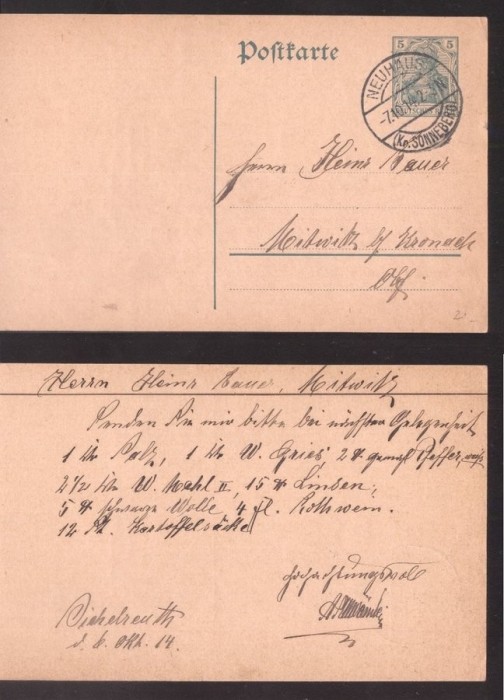 Postkarte
5 5
NEUHAUS
-7.10.14.2-
(Kr. SONNEBERG)
Herrn Heinr Bauer
Mitwitz b/ Kronach
Ofr
Herrn Heinr Bauer, Mitwitz
Senden Sie mir bitte bei nächster Gelegenheit
1 Ztr Salz, 1 Ztr W. Gries, 2 ℔ gemahl Pfeffer,
2 1/2 Ztr W. Mehl II, 15 ℔ Linsen,
5 ℔ schwarze Wolle 4 fl. Rothwein.
12 St. Kartoffelsäcke
Hochachtungsvoll
Sichelreuth
d. 6. Okt. 14.